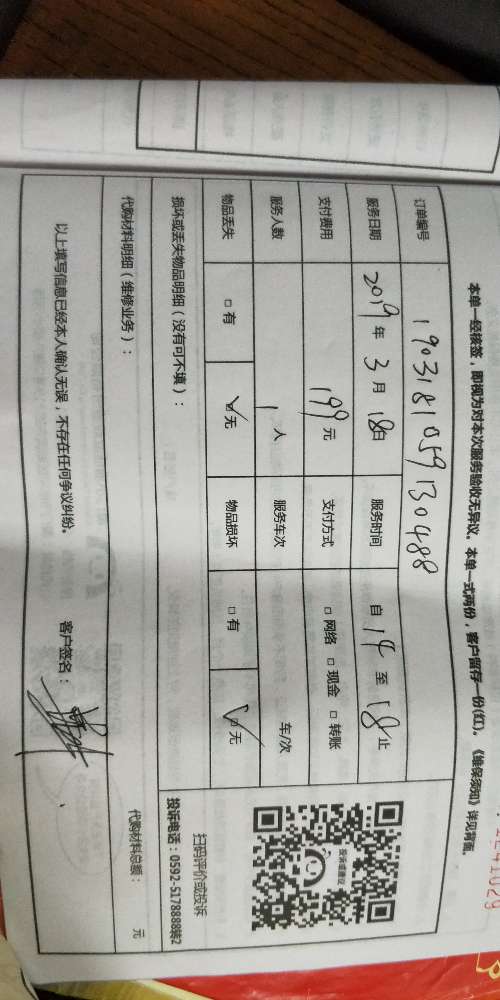 1241029
本单一经核签，即视为对本次服务验收无异议。本单一式两份，客户留存一份(红)。《维保须知》详见背面。
订单编号 1903181059130488
服务日期 2019年3月18日 服务时间 自14至18止
支付费用 199元 支付方式 □网络 □现金 □转账
服务人数 1人 服务车次 车/次
物品丢失 □有 ☑无 物品损坏 □有 ☑无
损坏或丢失物品明细（没有可不填）：
投诉或建议
扫码评价或投诉
投诉电话：0592-5178888转2
代购材料明细（维修业务）：
代购材料总额： 元
以上填写信息已经本人确认无误，不存在任何争议纠纷。
客户签名：